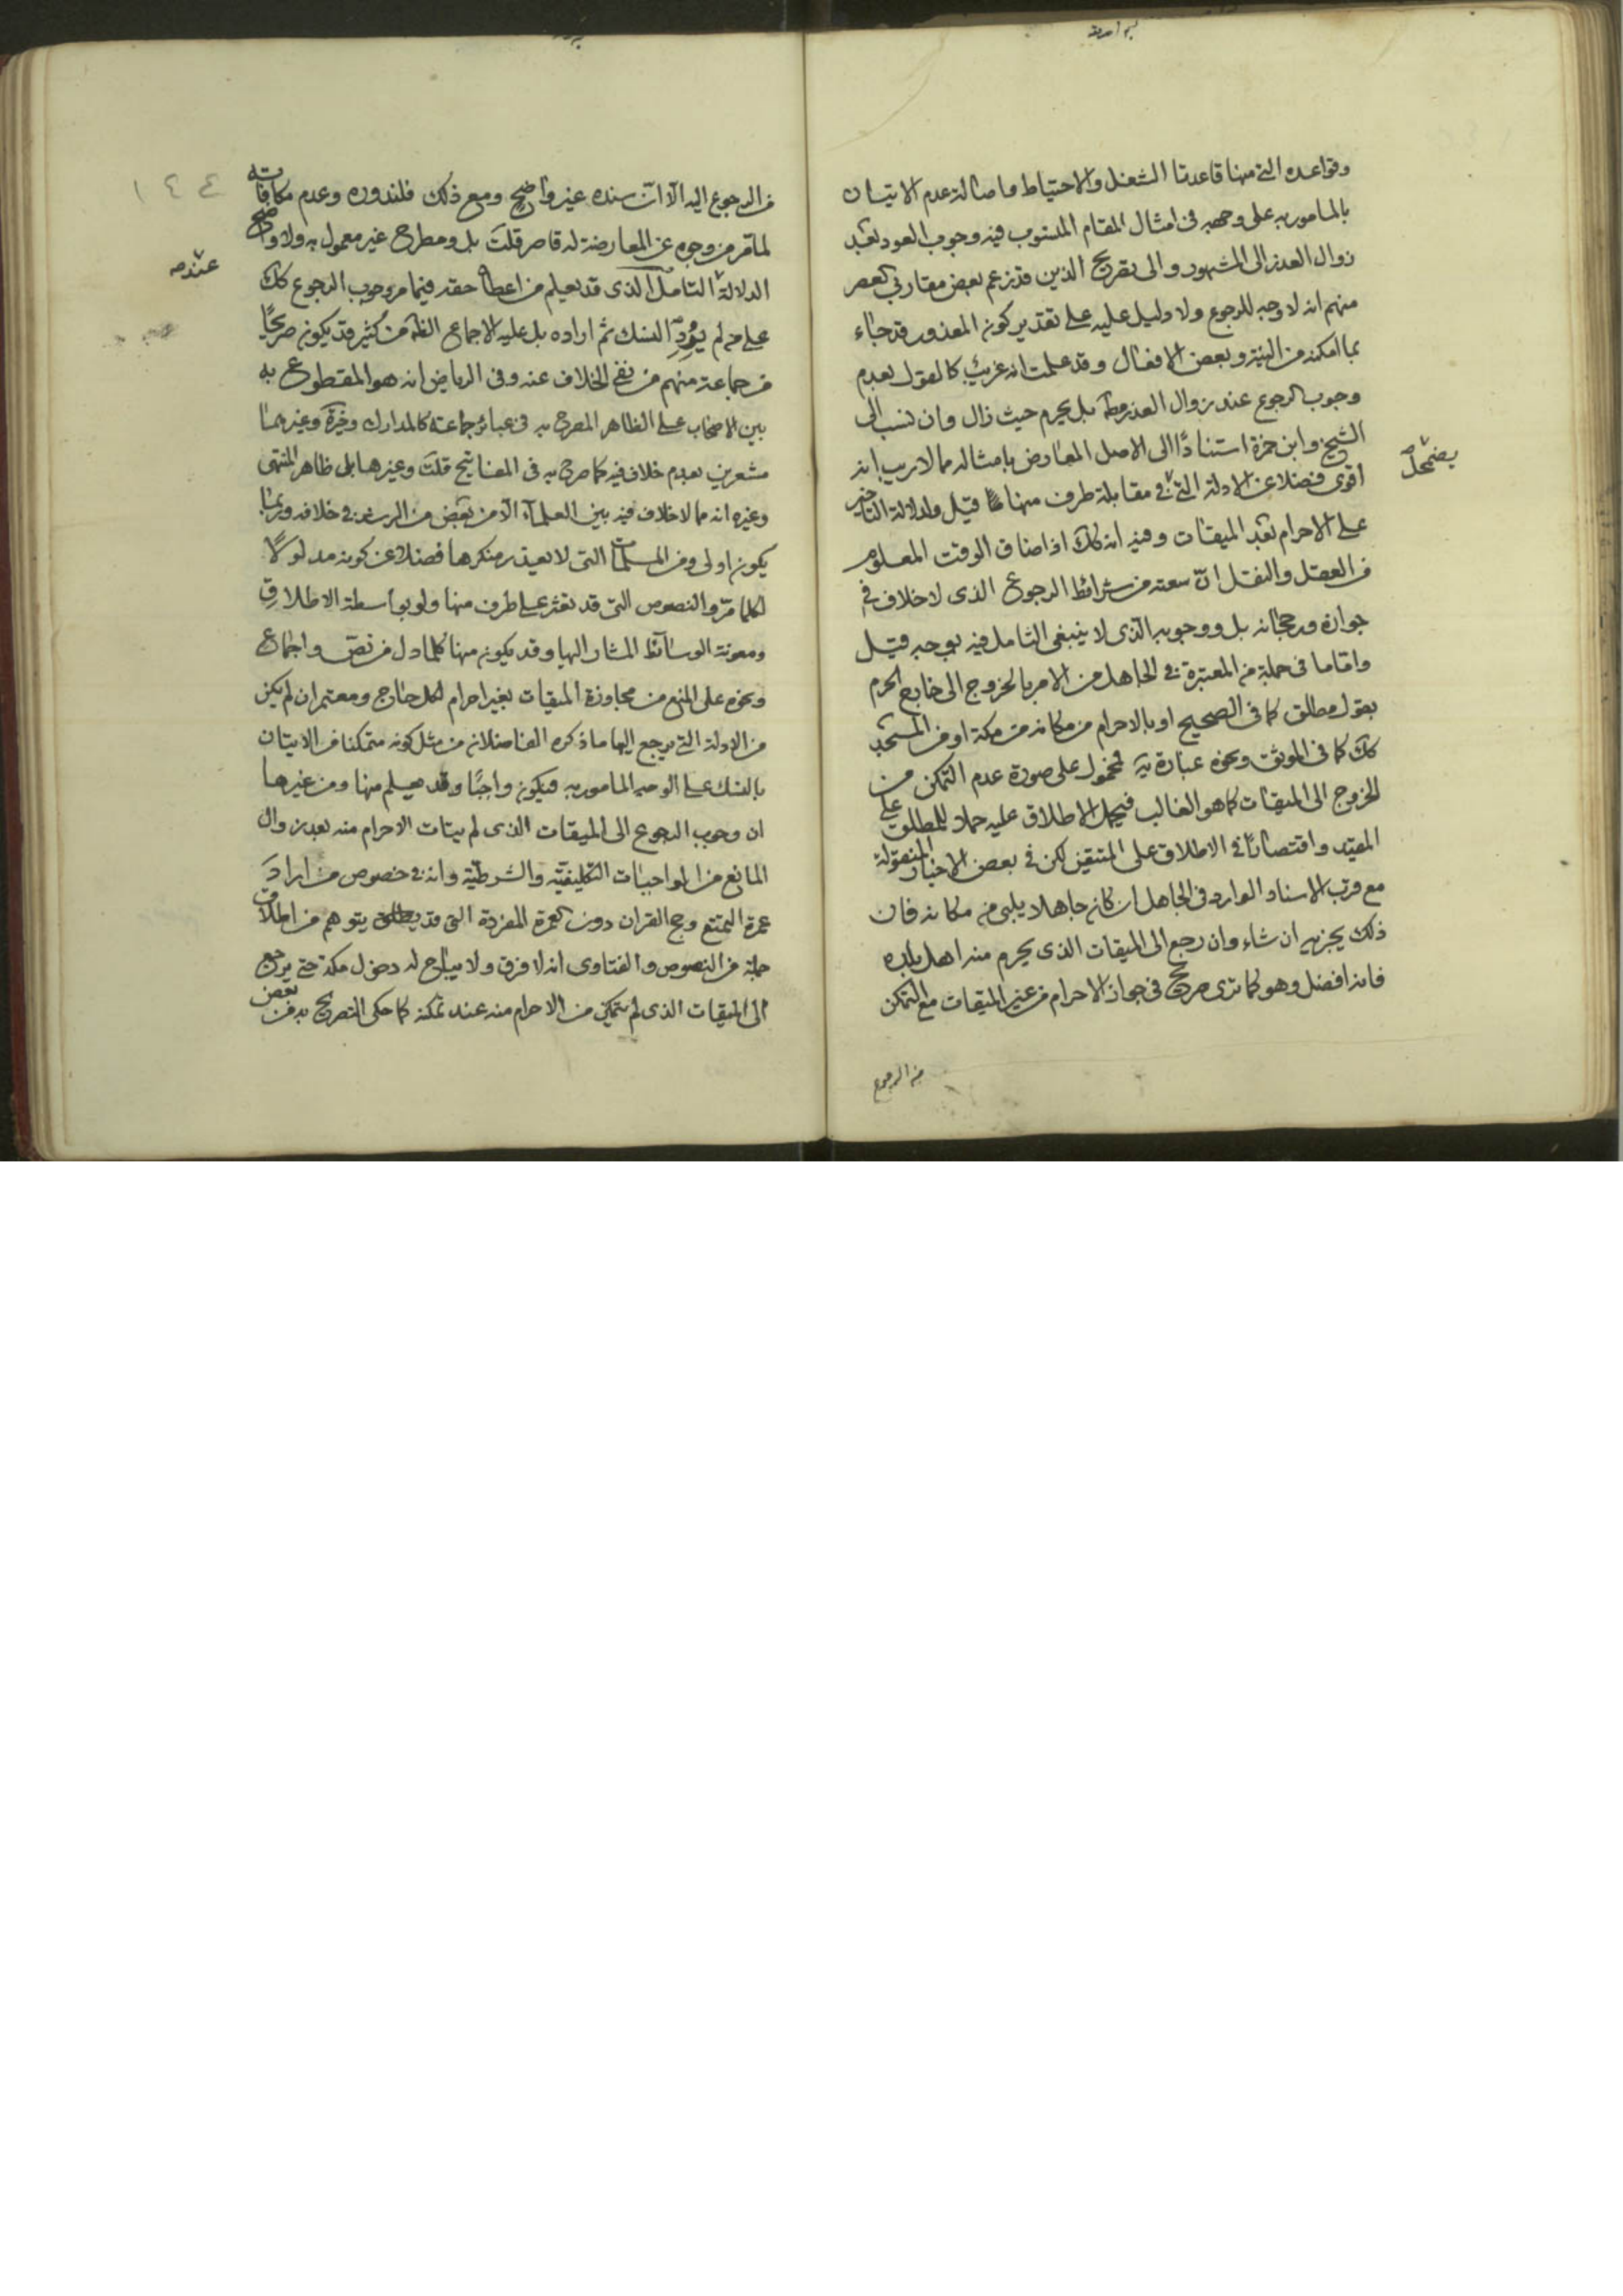 وقواعده التي منها قاعدتا الشغل والاحتياط واصالة عدم الاتيان
بالمامور به على وجهه في امثال المقام المنسوب فيه وجوب العود بعد
زوال العذر الى المشهور والى تصريح الذين قد زعم بعض مقاربي العصر
منهم انه لا وجه للرجوع ولا دليل عليه على تقدير كون المعذور قد جاء
بما امكنه من النية وبعض الافعال وقد علمت انه غريب كالقول بعدم
وجوب الرجوع عند زوال العذر مط بل يحرم حيث زال وان نسب الى
الشيخ وابن حمزة استنادًا الى الاصل المعارض بامثاله مما لا ريب انه
يضمحل
اقوى فضلا عن الادلة التي في مقابلة طرف منها قيل ولدلالة التاخير
على الاحرام بعد الميقات وفيه انه كك اذا ضاق الوقت المعلوم
من العقل والنقل انّ سعته من شرائط الرجوع الذي لا خلاف في
جوازه ورجحانه بل ووجوبه الذي لا ينبغي التامل فيه بوجه قيل
وامّا ما في جملة من المعتبرة في الجاهل من الامر بالخروج الى خارج الحرم
بقول مطلق كما في الصحيح او بالاحرام من مكانه من مكة او من المسجد
كك كما في الموثق ونحوه عبارة يه فمحمول على صورة عدم التمكن من
الخروج الى الميقات كما هو الغالب فيحمل الاطلاق عليه حملا للمطلق على
المقيد واقتصارًا في الاطلاق على المتيقن لكن في بعض الاخبار المنقولة
مع قرب الاسناد الوارد في الجاهل ان كان جاهلا يلبي من مكانه فان
ذلك يجزيه ان شاء وان رجع الى الميقات الذي يحرم منه اهل بلده
فانه افضل وهو كما ترى صريح في جواز الاحرام من غير الميقات مع التمكن
من الرجوع
١٤٤
من الرجوع اليه الّا انّ سنده غير واضح ومع ذلك فلندوره وعدم مكافاته
لما مر من وجوه عن المعارضة له قاصر قلت بل ومطرح غير معمول به ولا واضح
عنده
الدلالة التامل الذي قد يعلم من اعطا حقه فيما مر وجوب الرجوع كك
على من لم يرد النسك ثم اراده بل عليه الاجماع الظ من كثير وقد يكون صريحًا
من جماعة منهم من نفى الخلاف عنه وفي الرياض انه هو المقطوع به
بين الاصحاب على الظاهر المصرح به في عبائر جماعة كالمدارك وخيرة وغيرهما
مشعرين بعدم خلاف فيه كما صرح به في المفاتيح قلت وغيرها بل ظاهر المنتهى
وغيره انه مما لا خلاف فيه بين العلماء الّا من بعض من الرشد في خلافه وربما
يكون اولى ومن المسلمات التي لا يعذر منكرها فضلا عن كونه مدلولًا
لكلما مرّ والنصوص التي قد تعثر على طرف منها ولو بواسطة الاطلاق
ومعونة الوسائط المشار اليها وقد يكون منها كلما دل من نص واجماع
ونحوه على المنع من مجاوزة الميقات بغير احرام لكل حاج ومعتمر ان لم يكن
من الادلة التي يرجع اليها ما ذكره الفاضلان من مثل كونه متمكنا من الاتيان
بالنسك على الوجه المامور به فيكون واجبًا وقد يعلم منها ومن غيرها
ان وجوب الرجوع الى الميقات الذي لم يتات الاحرام منه بعد زوال
المانع من الواجبات التكليفيّة والشرطيّة وانه في خصوص من اراد
عمرة التمتع وحج القران دون العمرة المفردة التي قد يتوهم من اطلاق
جملة من النصوص والفتاوى انه لا فرق ولا يباح له دخول مكة حتى يرجع
الى الميقات الذي لم يتمكن من الاحرام منه عند تمكنه كما حكى التصريح به من بعض